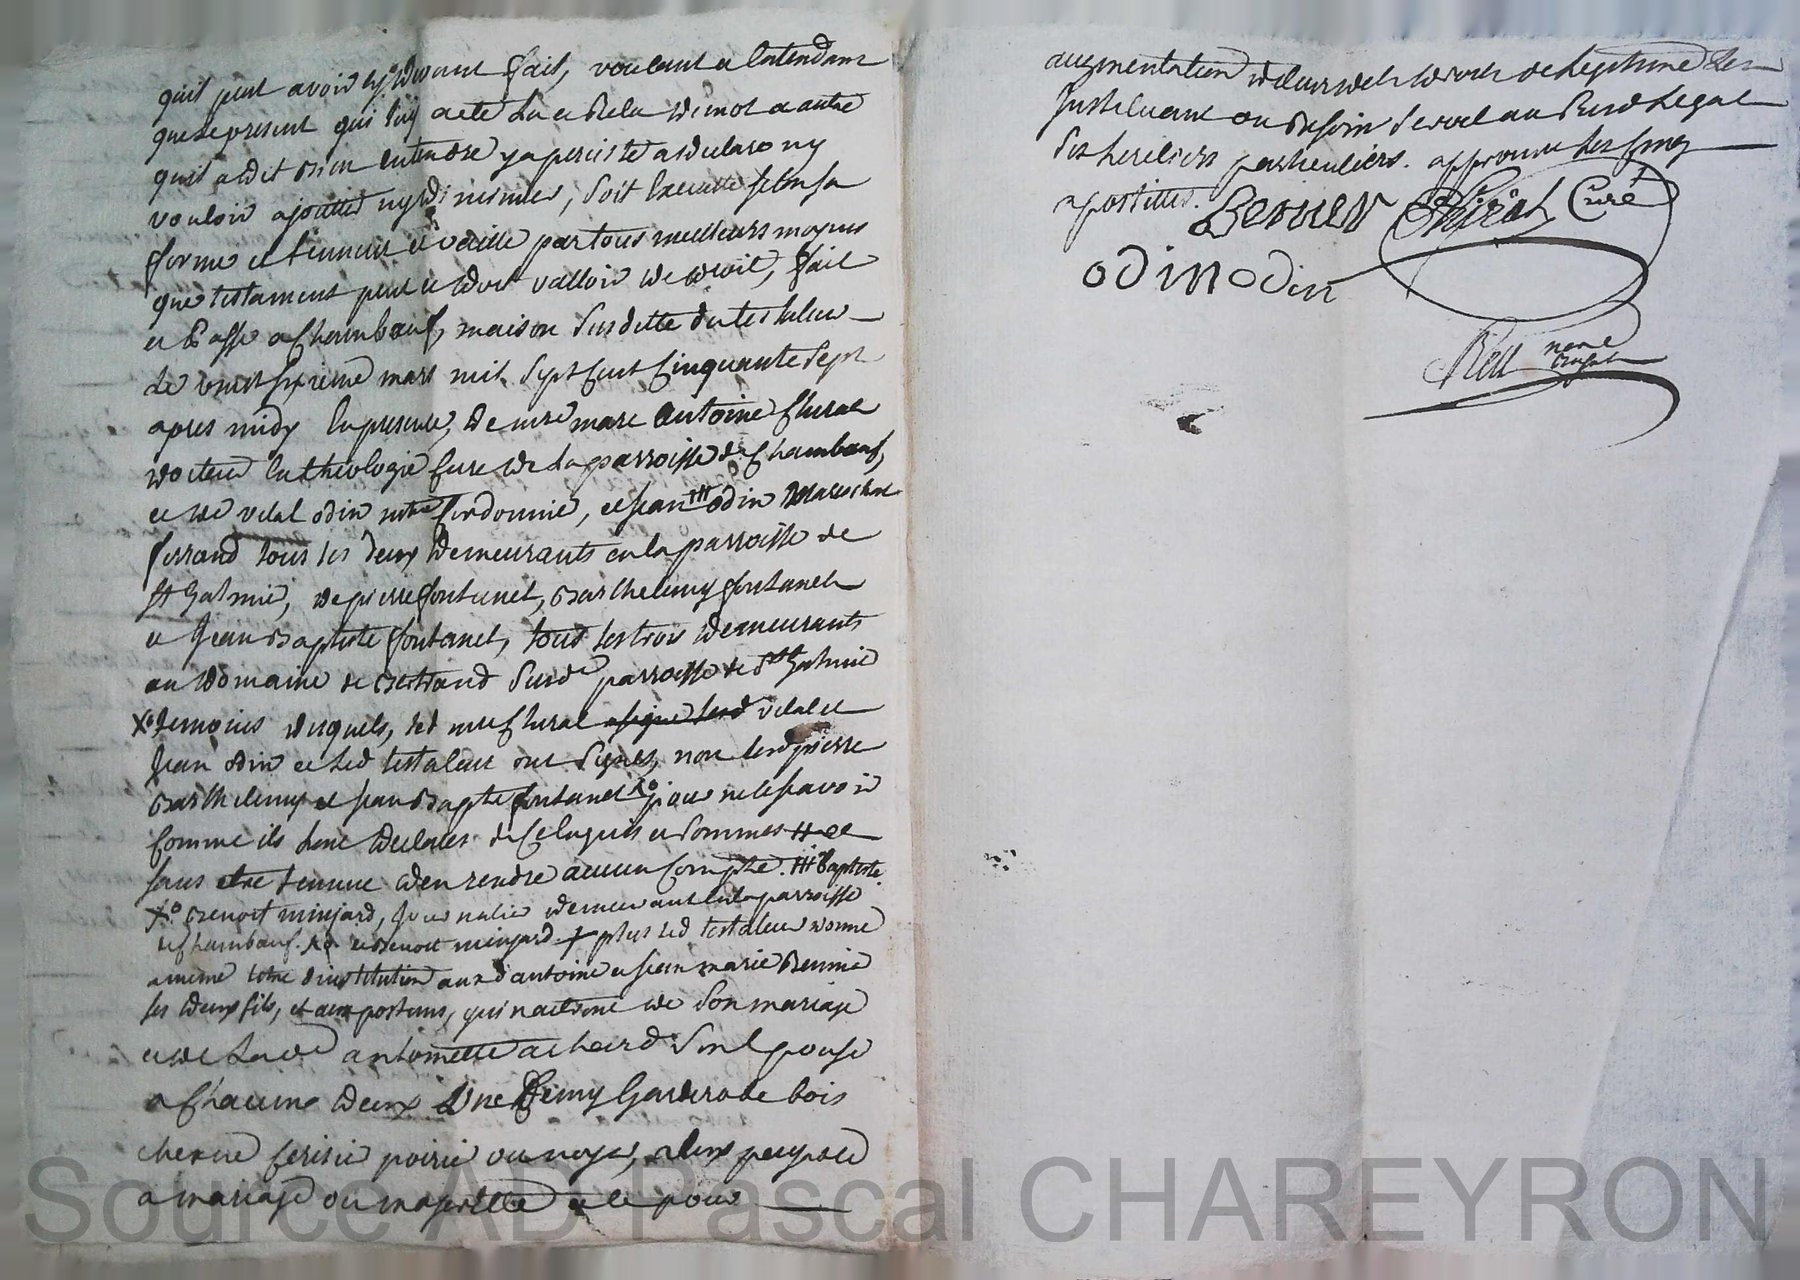 quil peut avoir cy devant fait, voulant et entendant
que le present qui luy a eté lu et relu de mot a autre
quil a dit bien entendre y a persisté a declaré ny
vouloir ajoutter ny diminuer, soit executté selon sa
forme et teneur et vaille par tous meilleurs moyens
que testament peut et doit valloir de droit, fait
et passé a Chambœuf, maison susditte du testateur
le vingt sixieme mars mil sept cent cinquante sept
apres midy en presence, de mre marc antoine
docteur en theologie curé de la parroisse de Chambœuf,
et de vital odin mtre cordonnié, et jean ### odin marechal
ferrand tous les deux demeurants en la parroisse de
st galmié, de pierre fontanet, barthelemy fontanet
et jean baptiste fontanet, tous les trois demeurants
au domaine de bertrand susde parroisse de st galmié
Xo temoins desquels, led mre a signé led vital et
jean odin et led testateur ont signés, non led pierre
barthelemy et jean bapte fontanet Xo pour ne le scavoir
comme ils ont declarés de ce enquis et sommés #
sans etre tenue den rendre aucun compte. ### baptiste
Xo benoit minjard, journalié demeurant en la parroisse
de Chambœuf. Xo et benoit minjard + plus led testateur donne
a meme titre dinstitution auxd antoine et jean marie
ses deux fils, et aux postumes, qui naitront de son mariage
et de lade antoinette achard son epouse
a chacun deux une demy garderobe bois
chesne cerisié poirié ou noyé, a eux payable
a mariage ou majorité et ce pour
augmentation de leursdets droits de legitime les
instituant au besoin serval au susd legat
ses heritiers particuliers. approuvé les cinq
apostilles. Curé
odin odin
Source AD Pascal CHAREYRON